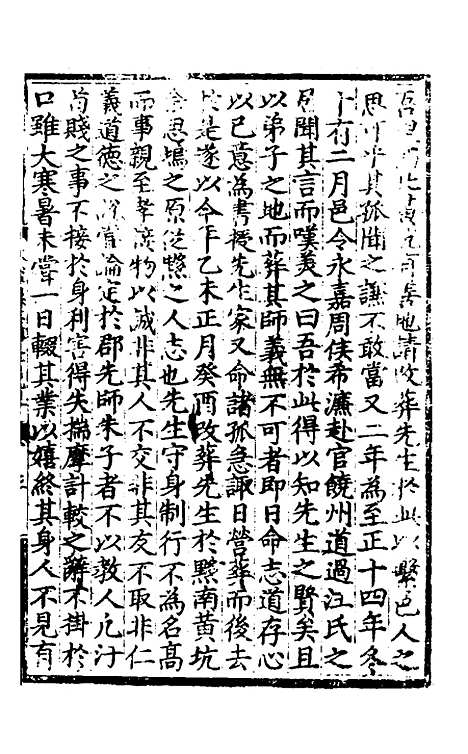 地請改葬先生於此以繫邑人之
思可乎其孤聞之謙不敢當又二年為至正十四年冬
十有二月邑令永嘉周侯希濂赴官饒州道過汪氏之
居聞其言而嘆美之曰吾於此得以知先生之賢矣且
以弟子之地而葬其師義無不可者即日命志道存心
以已意為書授先生家又命諸孤急諏日營葬而後去
於是遂以今年乙未正月癸酉改葬先生於黟南黃坑
思塢之原從黟之人志也先生守身制行不為名高
而事親至孝接物以誠非其人不交非其友不取非仁
義道德之說嘗論定於郡先師朱子者不以教人凡汙
茍賤之事不接於身利害得失揣摩計較之辭不掛於
口雖大寒暑未嘗一日輟其業以嬉終其身人不見有